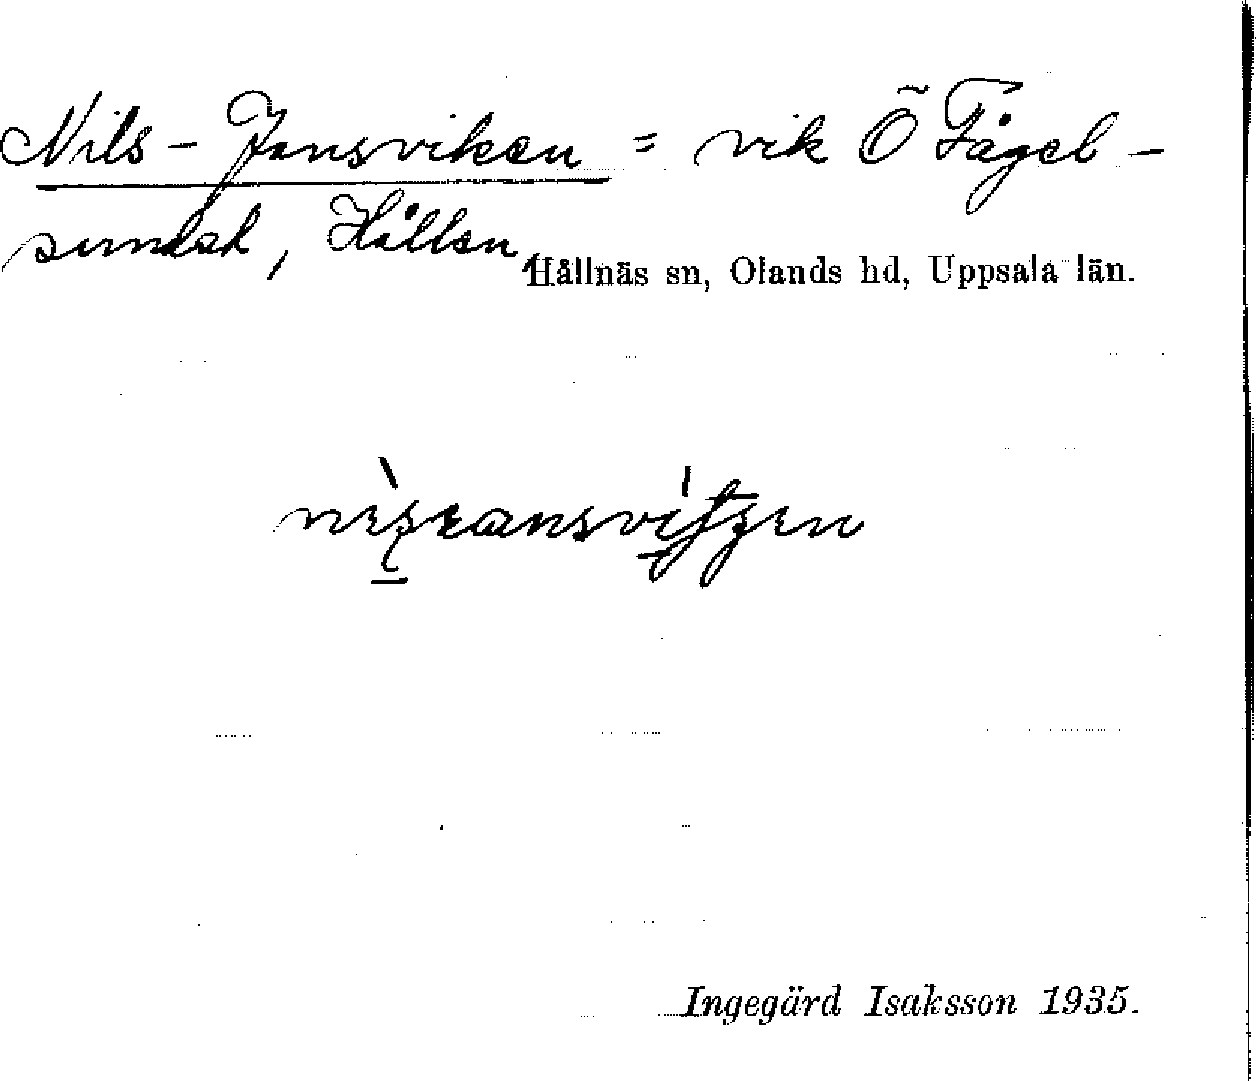 Nils-Jansviken = vik Ö Fågel-
sundet, Hållen,
Hållnäs sn, Olands hd, Uppsala län.
Ingegärd Isaksson 1935.